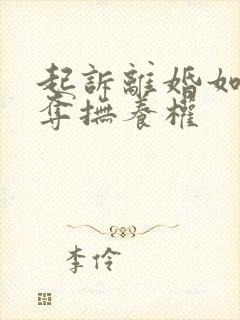 起訴離婚如
奪撫養權
李伶